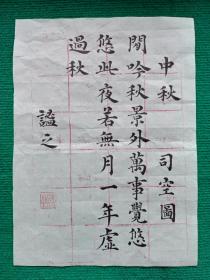 中秋 司空圖
閒吟秋景外萬事覺悠
悠此夜若無月一年虛
過秋
謐之